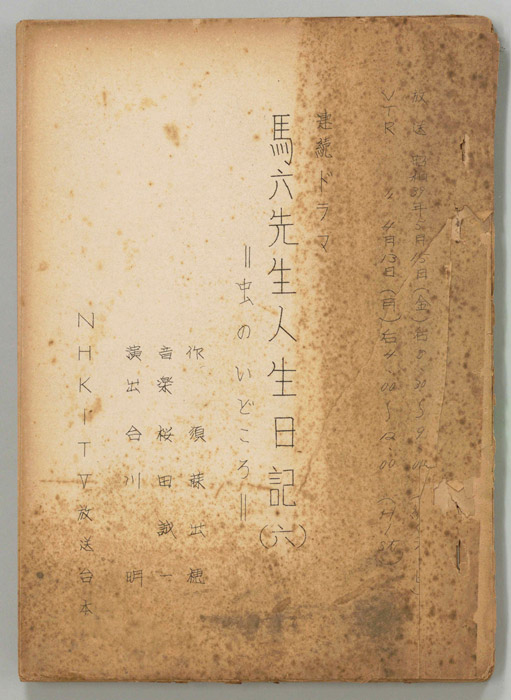 放送 昭和39年5月15日(金)
VTR 〃 4月13日(月)
連続ドラマ
馬六先生人生日記(六)
=虫のいどころ=
作 須藤出穂
音楽 桜田誠一
演出 合川明
NHKITV放送台本